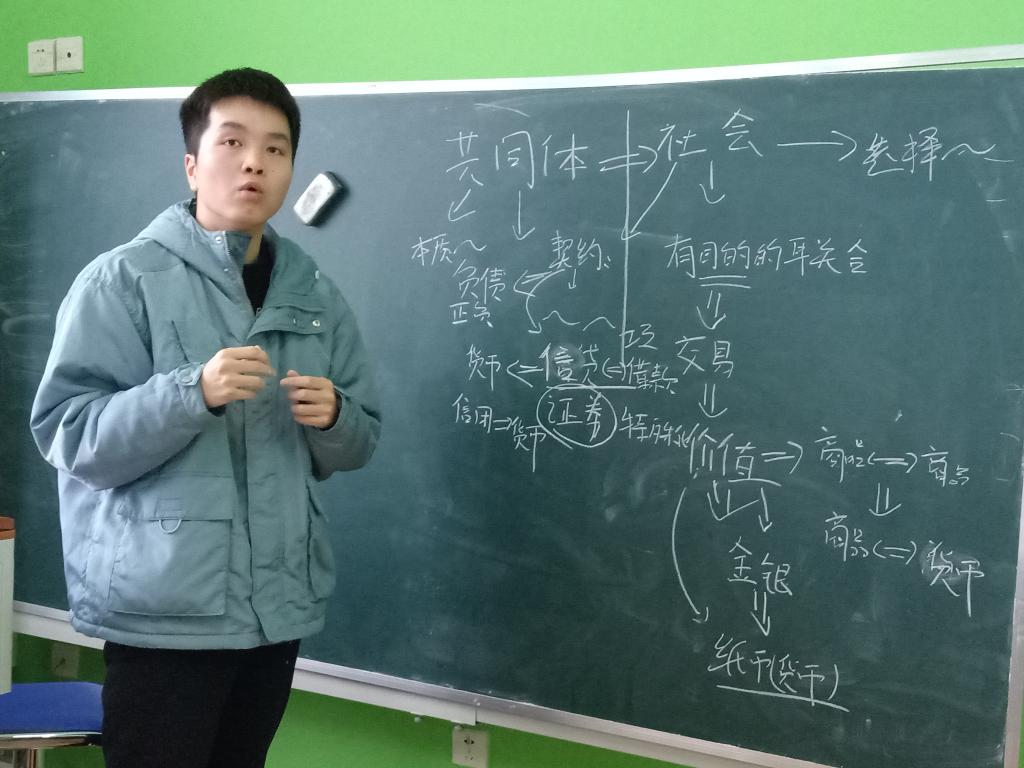 共同体 ⇒ 社会 → 选择～
本质～ 契约: 有目的的联合
负债
正负
货币 ⇐ 信贷 ⇔ 借款 交易
信用 ⇒ 货币 证券
价值 ⇒ 商品 ⇔ 商品
金银 商品 ⇔ 货币
纸币(货币)